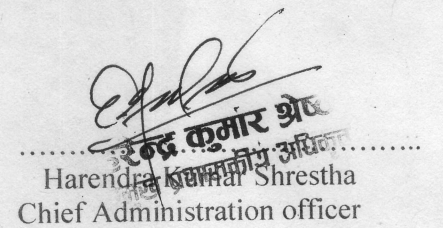 रेन्द्र कुमार श्रेष्ठ
प्रशासकीय अधिकृत
Harendra Kumar Shrestha
Chief Administration officer